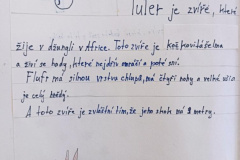 Tuleř je zvíře, které
žije v džungli v Africe. Toto zvíře je kočkovitá šelma
a živí se hady, které nejdřív omráčí a poté sní.
Flufr má silnou vrstvu chlupů, má čtyři nohy a velké uši
je celý
A toto zvíře je zvláštní tím, že jeho stoh má 2 metry.